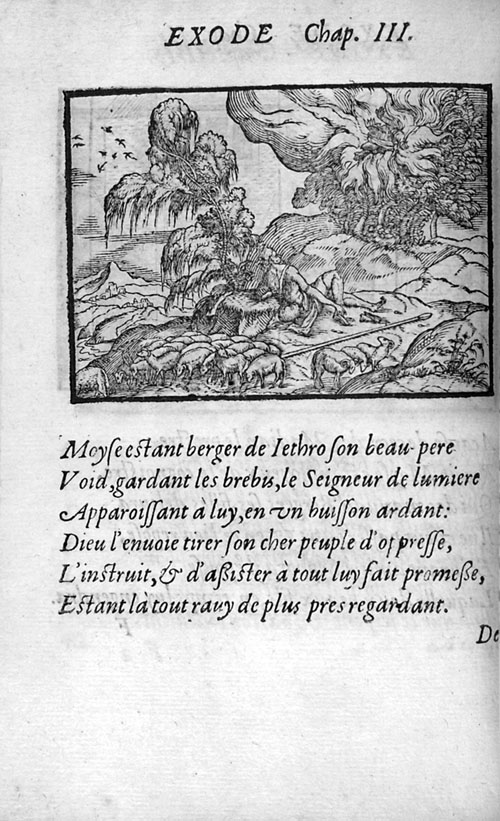 EXODE Chap. III.
Moyſe eſtant berger de Iethro ſon beau-pere
Void, gardant les brebis, le Seigneur de lumiere
Apparoiſſant à luy, en vn buiſſon ardant:
Dieu l'enuoie tirer ſon cher peuple d'oppreſſe,
L'inſtruit, & d'aſsiſter à tout luy fait promeſſe,
Eſtant là tout rauy de plus pres regardant.
De